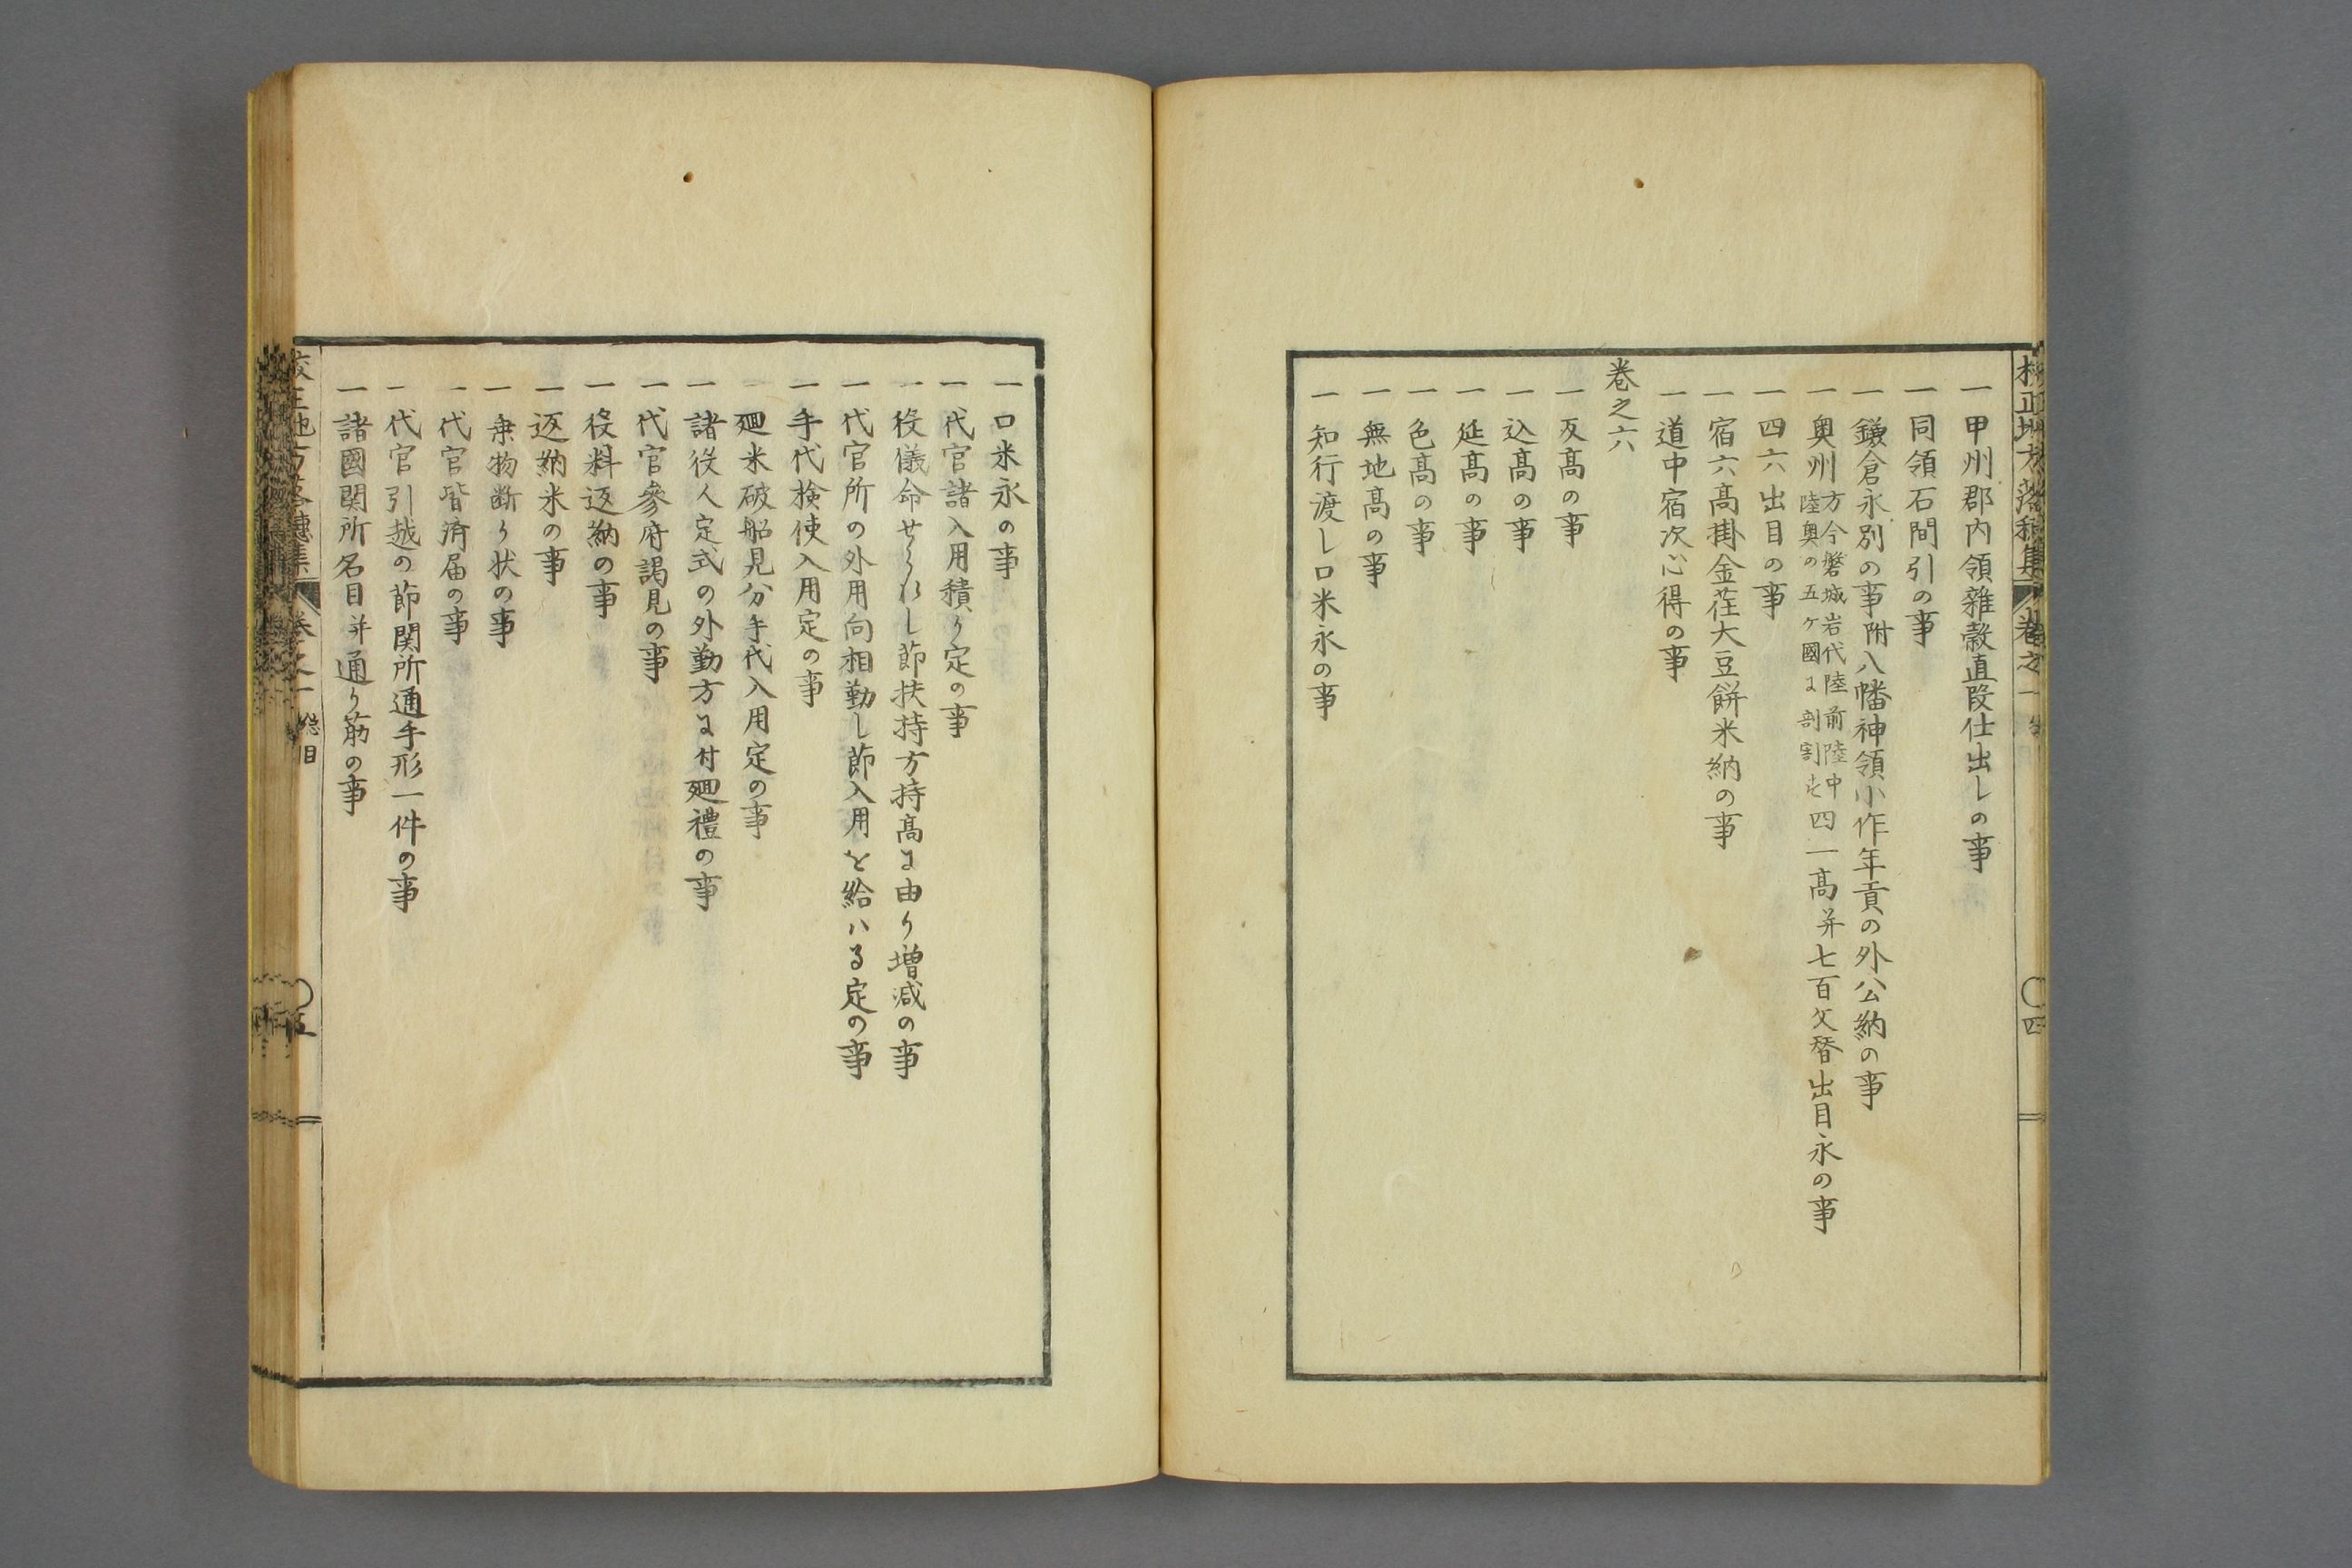 一甲州郡内領雑穀直段仕出しの事
一同領石間引の事
一鎌倉永別の事附八幡神領小作年貢の外公納の事
一奥州方今磐城岩代陸前陸中陸奥の五ヶ國に剖割す四一髙并七百文替出目永の事
一四六出目の事
一宿六髙掛金荏大豆餅米納の事
一道中宿次心得の事
巻之六
一反髙の事
一込髙の事
一延髙の事
一色髙の事
一無地髙の事
一知行渡し口米永の事
一口米永の事
一代官諸入用積り定の事
一役儀命せられし節扶持方持髙に由り増減の事
一代官所の外用向相勤し節入用を給ハる定の事
一手代検使入用定の事
一廻米破船見分手代入用定の事
一諸役人定式の外勤方に付廻禮の事
一代官參府謁見の事
一役料返納の事
一返納米の事
一乗物断り状の事
一代官皆済届の事
一代官引越の節関所通手形一件の事
一諸國関所名目并通り筋の事